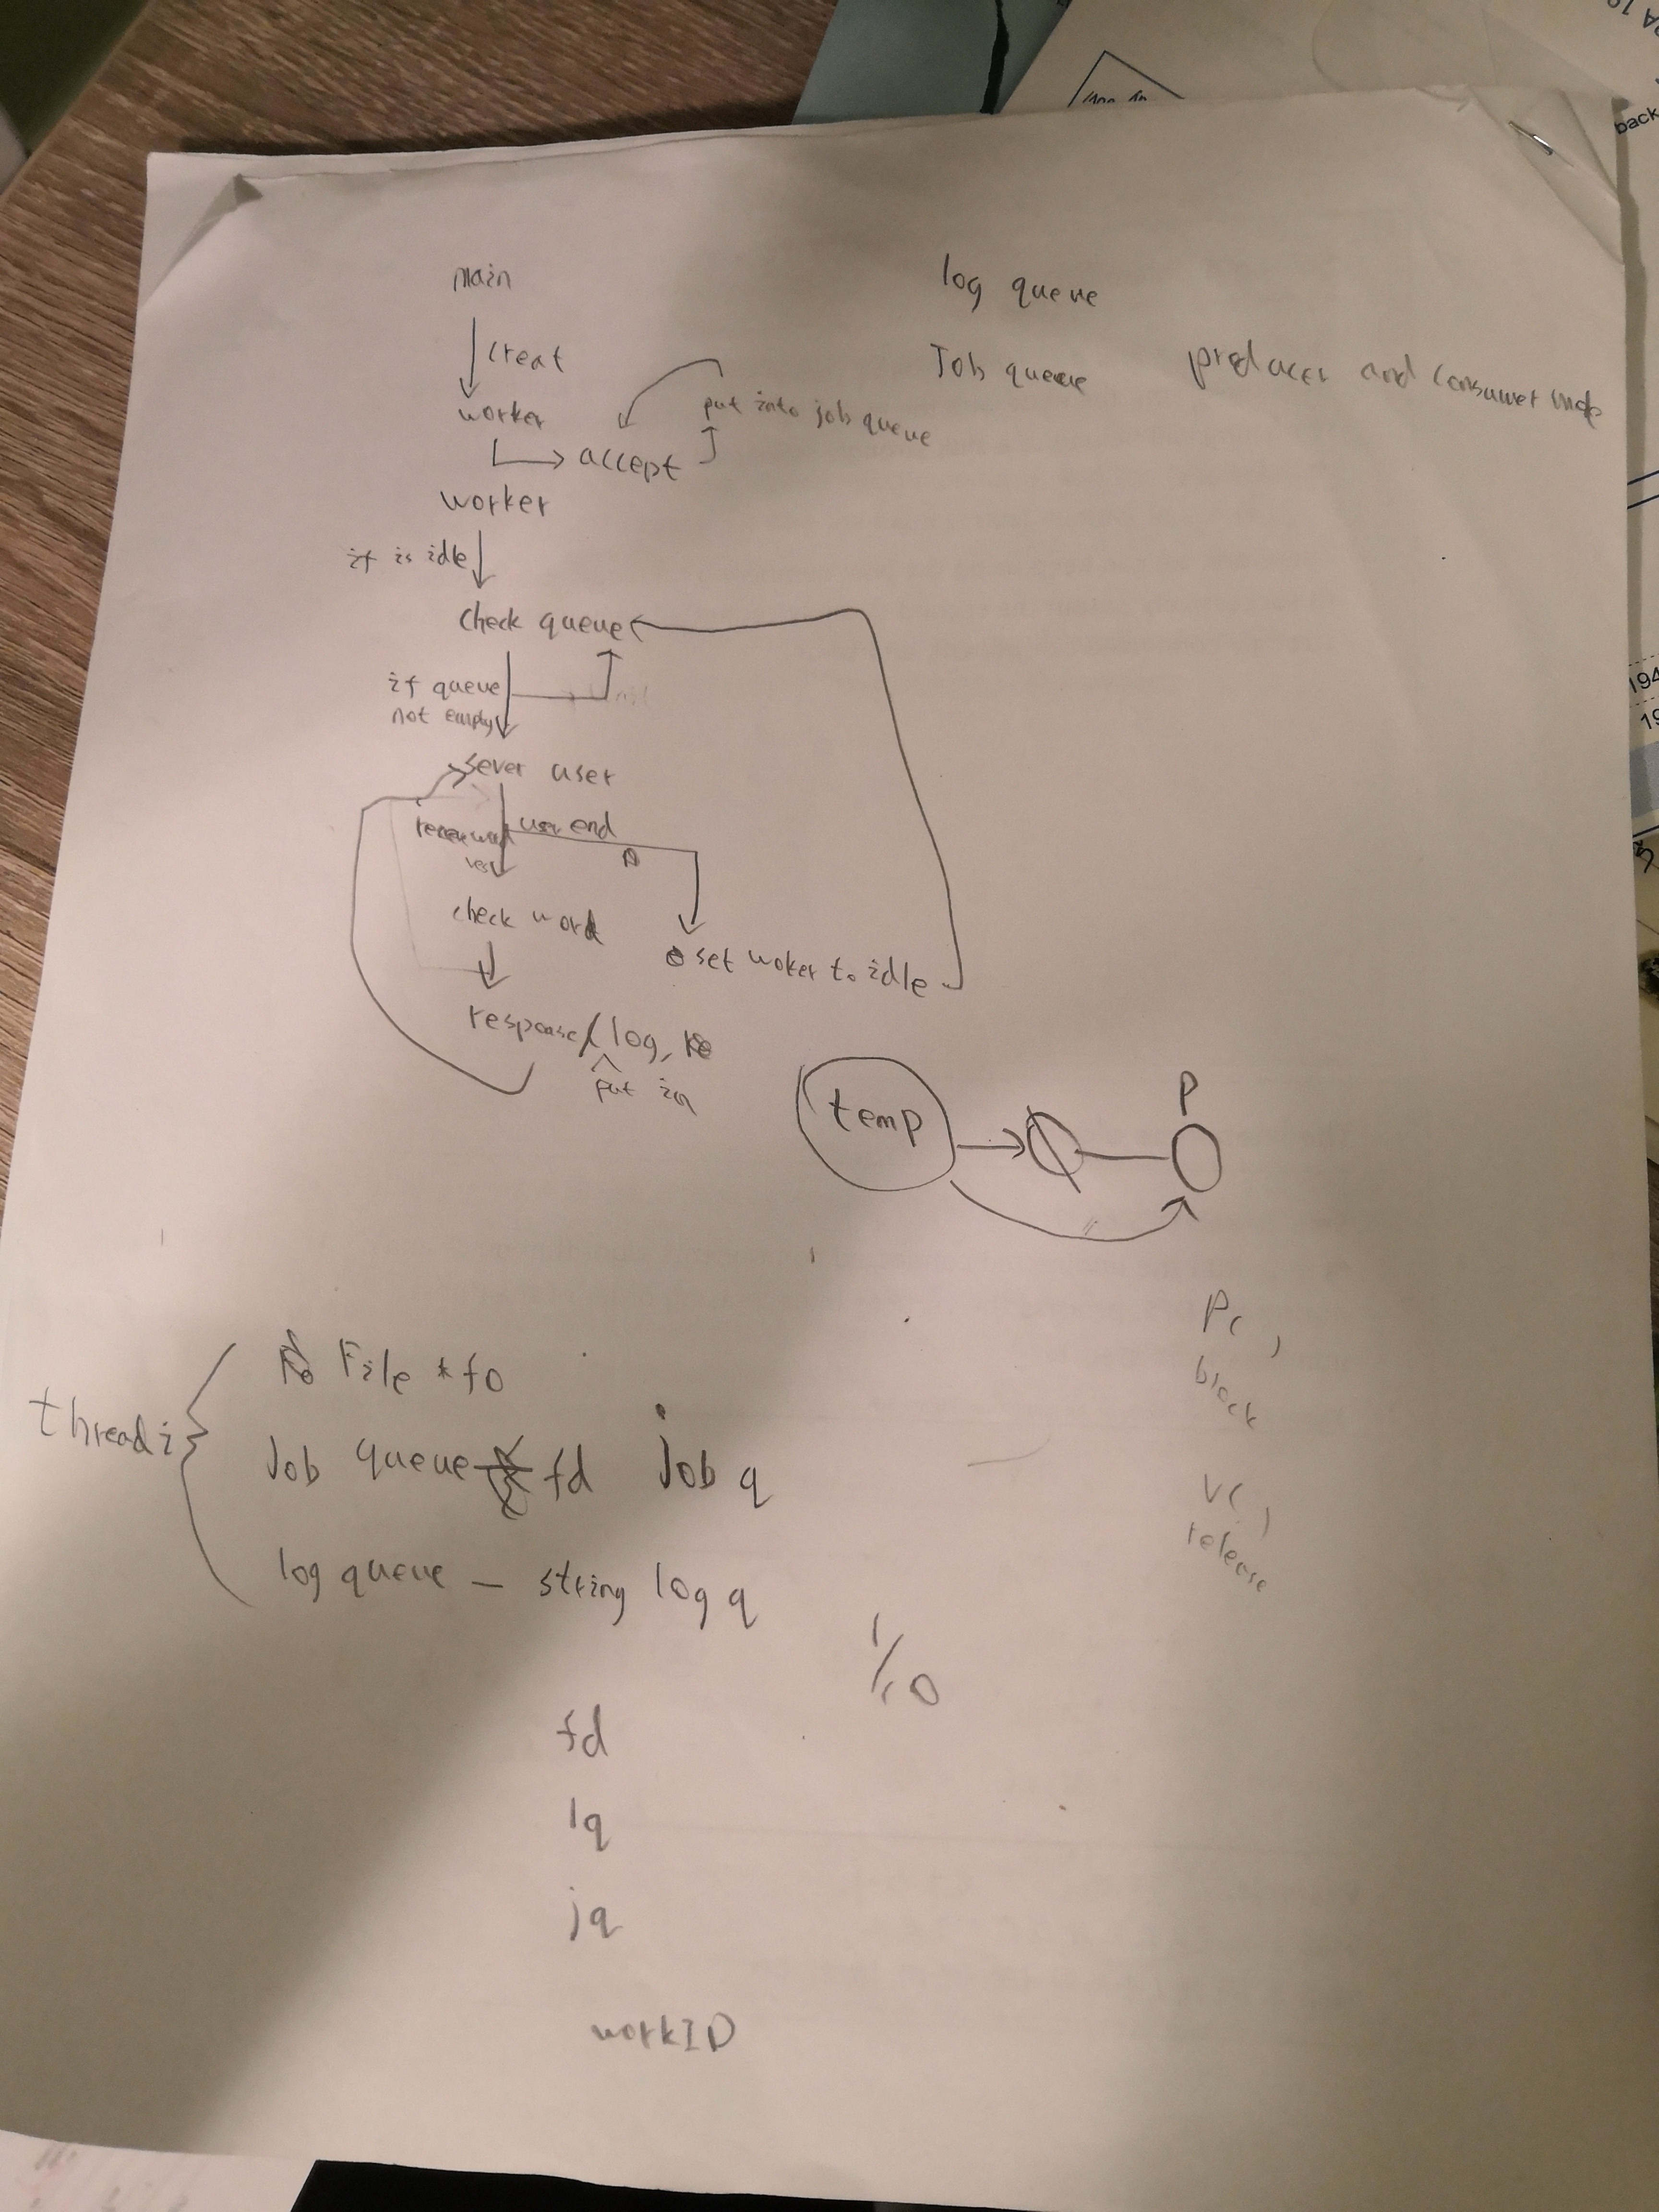 main
creat
worker
accept
put into job queue
worker
if is idle
check queue
if queue
not empty
sever user
user end
check word
set woker to idle
response/log,
put in
log queue
Job queue
producer and consumer
temp
P
P( )
block
V( )
release
thread i
File *fo
Job queue fd job q
log queue - string log q
1/0
fd
lq
jq
workID
back
194
19